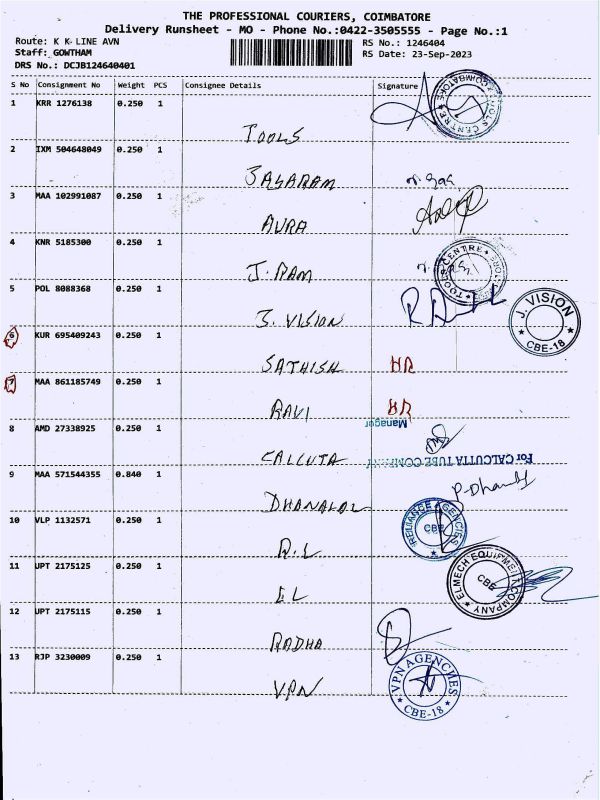 THE PROFESSIONAL COURIERS, COIMBATORE
Delivery Runsheet - MO - Phone No.:0422-3505555 - Page No.:1
Route: K K LINE AVN
RS No.: 1246404
Staff: GOWTHAM
RS Date: 23-Sep-2023
DRS No.: DCJB124640401
S No Consignment No Weight PCS Consignee Details Signature
1 KRR 1276138 0.250 1
TOOLS
TOOLS CENTRE COIMBATORE
2 IXM 504648049 0.250 1
JASARAM
3 MAA 102991087 0.250 1
AURA
4 KNR 5185300 0.250 1
J. RAM
TOOLS CENTRE
5 POL 8088368 0.250 1
J. VISION
J. VISION
CBE-18
6 KUR 695409243 0.250 1
SATHISH
7 MAA 861185749 0.250 1
RAVI
Manager
8 AMD 27338925 0.250 1
CALCUTA
For CALCUTTA TUBE COMPANY
9 MAA 571544355 0.840 1
DHANALAL
P. Dhandy
10 VLP 1132571 0.250 1
R.L
RELIANCE AGENCIES
CBE
11 UPT 2175125 0.250 1
EL
ELMECH EQUIPMENT COMPANY
CBE
12 UPT 2175115 0.250 1
RADHA
13 RJP 3230009 0.250 1
VPN
VPN AGENCIES
CBE-18